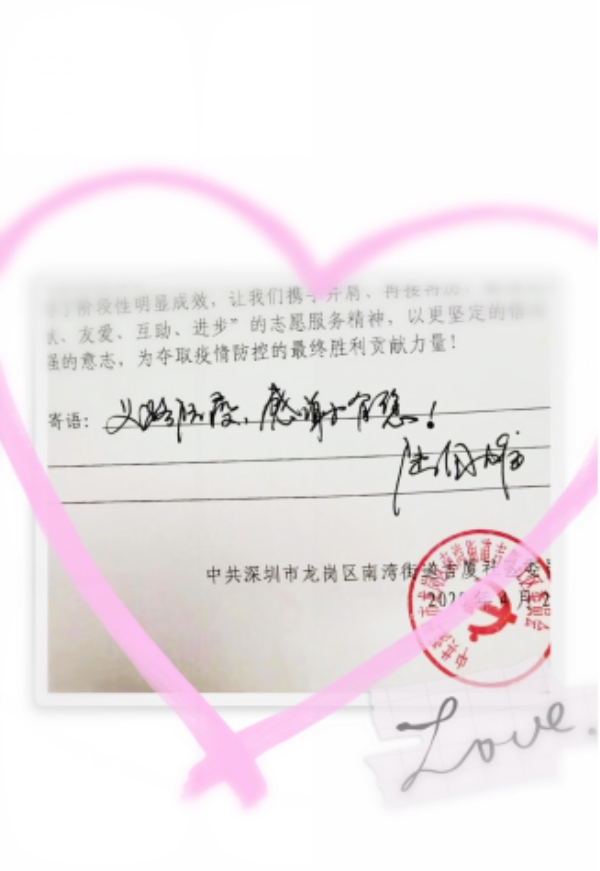 阶段性明显成效，让我们携手并肩、再接再厉、
、友爱、互动、进步”的志愿服务精神，以更坚定的
强的意志，为夺取疫情防控的最终胜利贡献力量！
寄语：
防疫，感谢有您！
中共深圳市龙岗区南湾街道吉厦社区委
年4月2
Love.